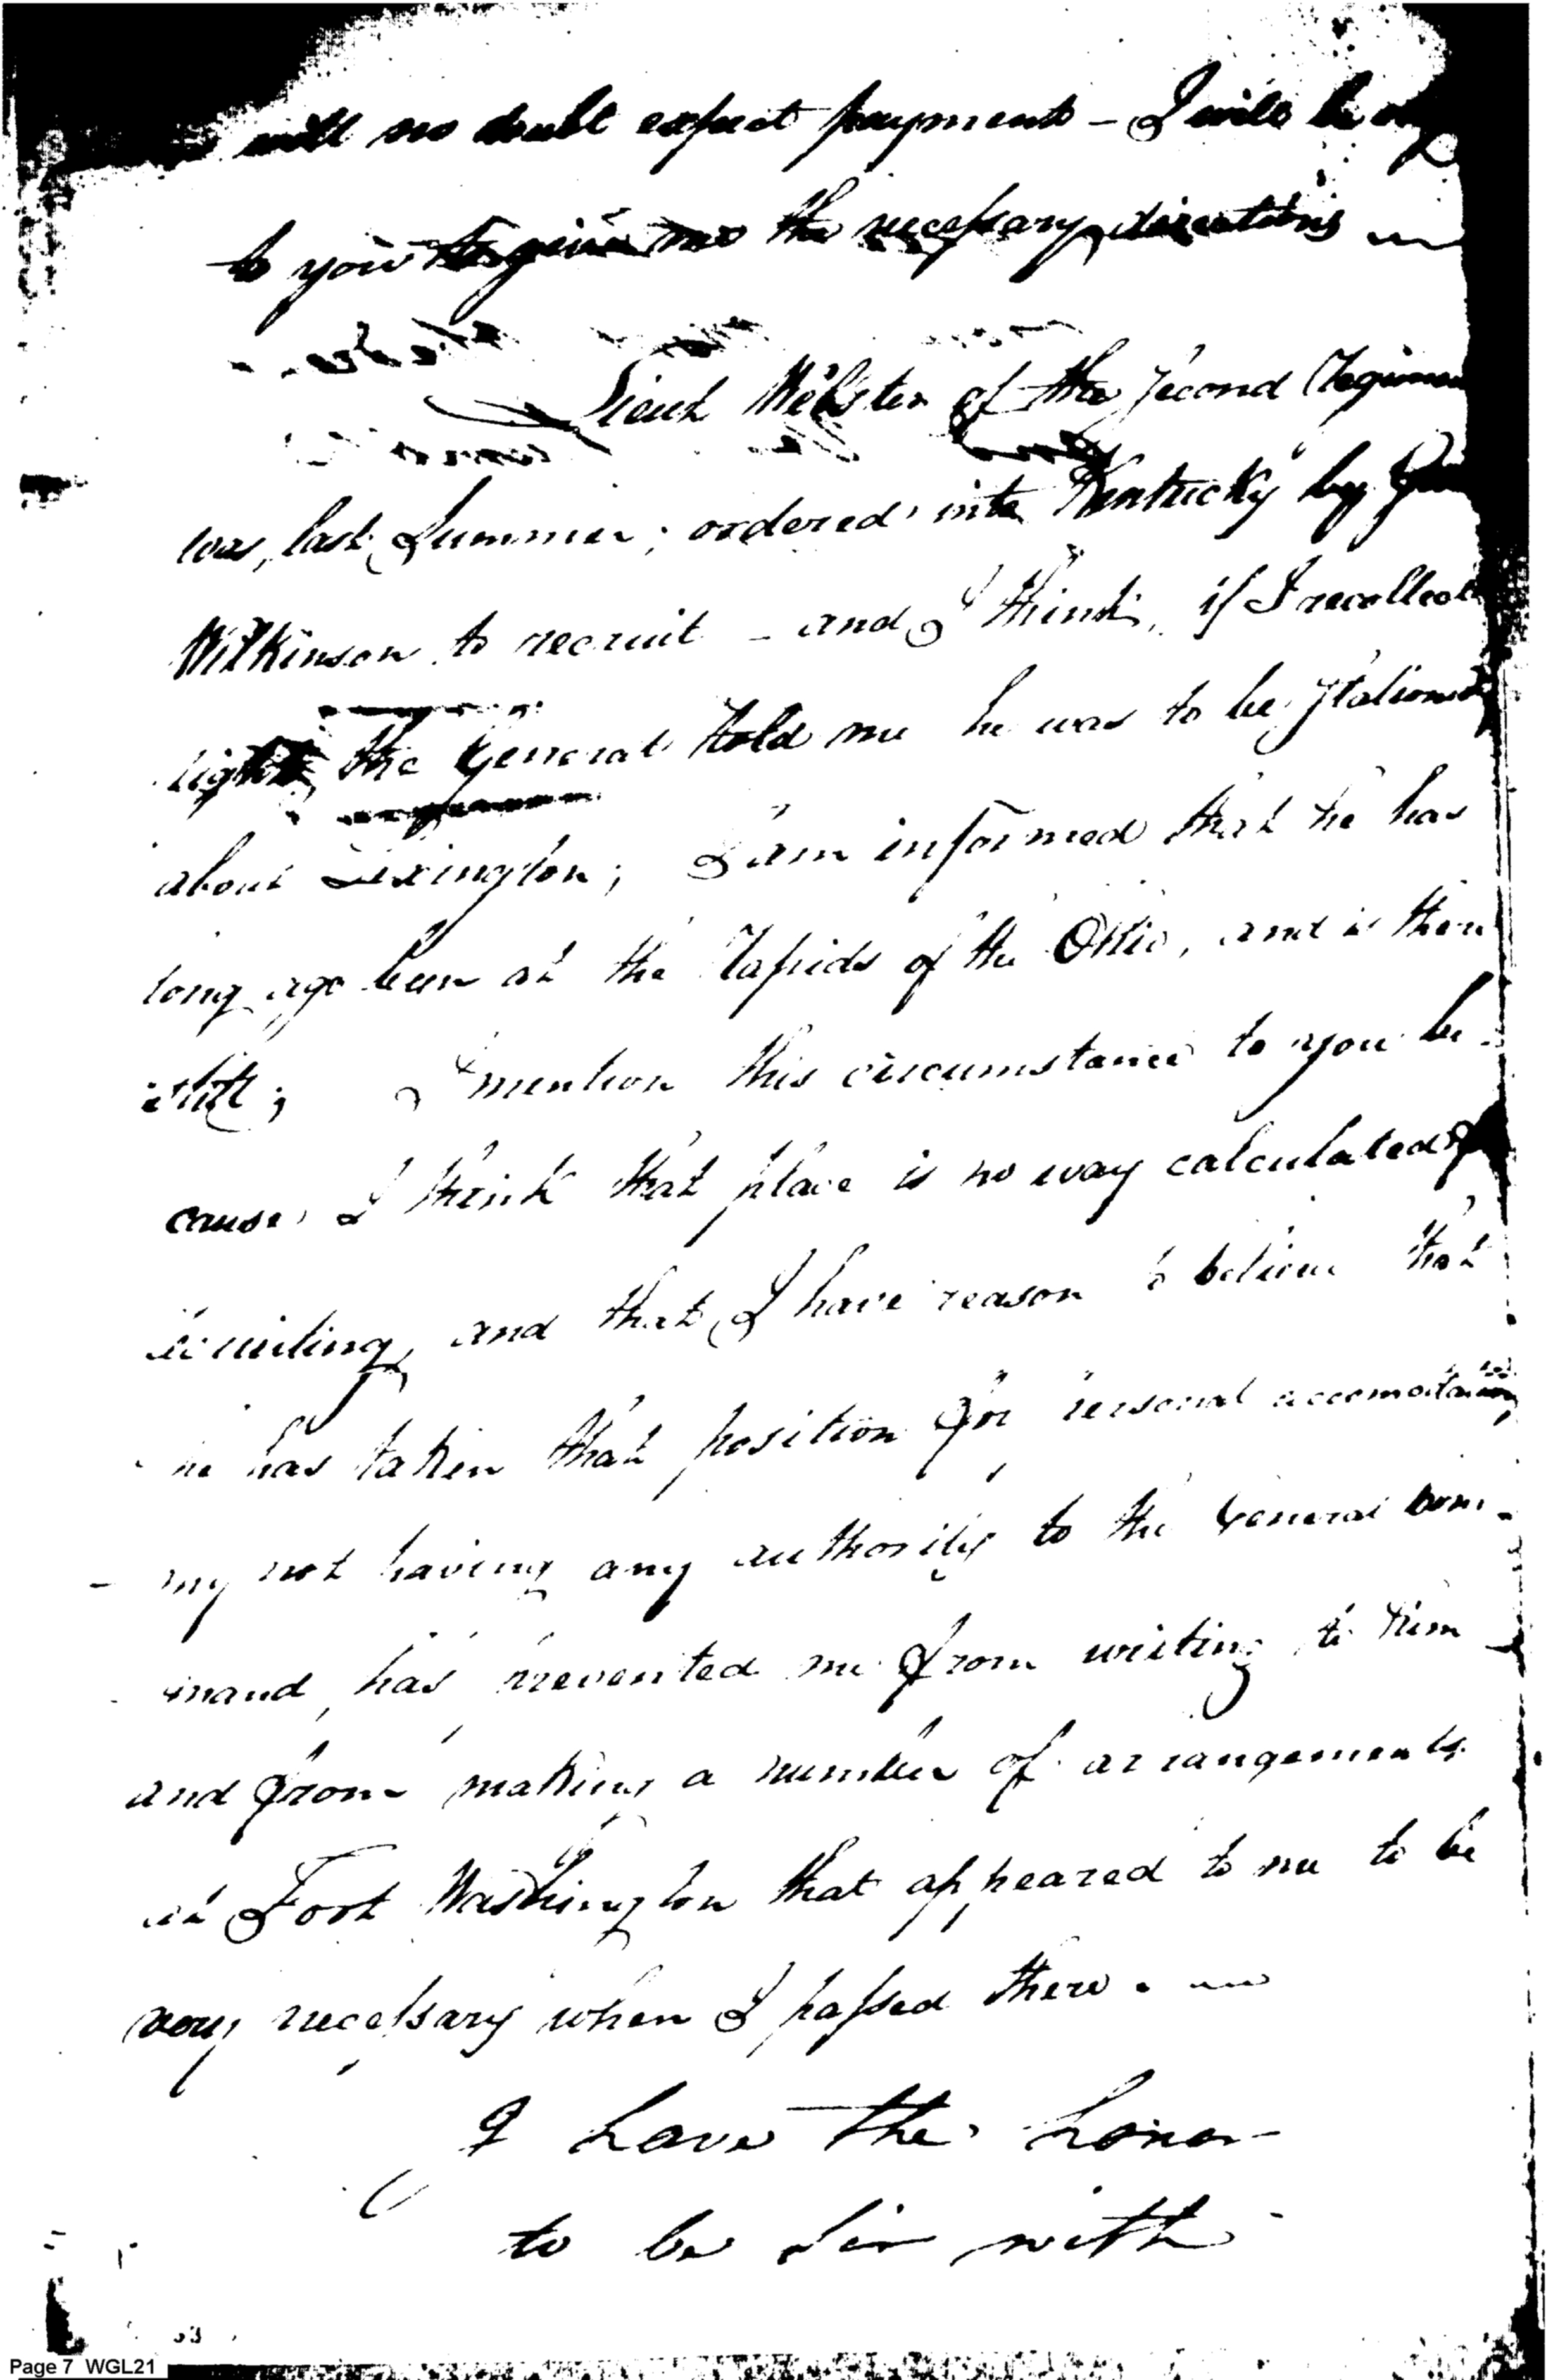 will no doubt expect payment - I will be
to you to give me the necessary directions
Lieut Webster of the Second Regimen
was, last Summer, ordered into Kentucky by
Wilkinson to recruit - and I think, if I recollect
right, the General told me he was to be Stationed
about Lexington; I am informed that he has
long ago been at the Rapids of the Ohio, and is there
still; I mention this circumstance to you be-
cause, I think that place is no way calculated
recruiting, and that I have reason to believe that
he has taken that position for personal accomodation,
- my not having any authority to the General Com-
mand, has prevented me from writing to him
and from making a number of arrangements
at Fort Washington that appeared to me to be
very necessary when I passed there.
I have the honor
to be Sir with
Page 7 WGL21